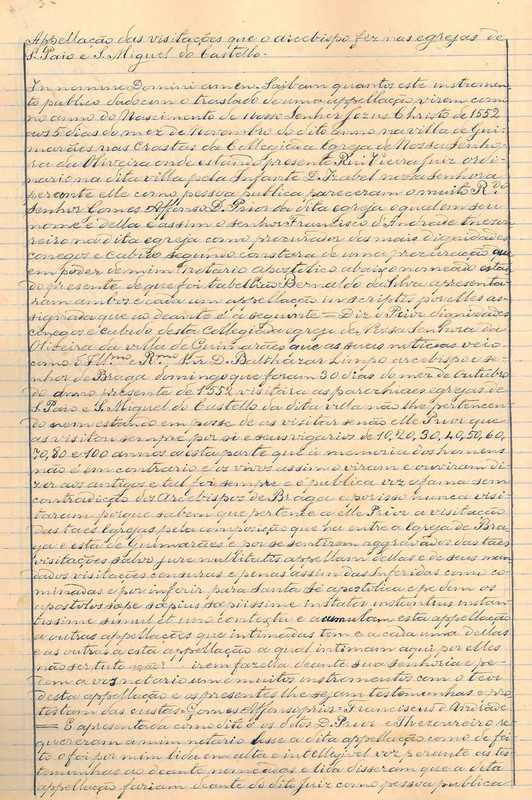 Appellação das visitações que o arcebispo fez nas egrejas de
S. Paio e S. Miguel do Castello.
In nomine Domini amen. Saibam quantos este instrumen-
to publico dado com o traslado de uma appellação virem como
no anno do Nascimento de Nosso Senhor Jezus Christo de 1552
aos 5 dias do mez de Novembro do dito anno na villa de Gui-
marães nas Crastas da Collegiada Egreja de Nossa Senho-
ra da Oliveira onde estando presente Rui Vieira juiz ordi-
nario na dita villa pela Infante D. Izabel nossa Senhora
perante elle como pessoa publica pareceram o muito Rdo
Senhor Gomes Affonso D. Prior da dita egreja o qual em seu
nome e della e assim o senhor Francisco d'Andrade thesou-
reiro na dita egreja como procurador das mais dignidades
conegos e cabido segundo constava de uma procuração que
em poder de mim Notario apostolico abaixo nomeado estav
do presente de que foi tabellião Bernaldo da Silva apresenta-
ram ambos e cada um appellação in scriptis por elles as-
signada que ao deante é a seguinte = Diz o Prior dignidades
conegos e cabido desta Collegiada egreja de Nossa Senhora da
Oliveira da villa de Guimarães que as suas noticias veio
como o Illmo e Rmo Snr D. Balthazar Limpo arcebispo e se-
nhor de Braga domingo que foram 30 dias do mez de Outubro
do anno presente de 1552 visitára as parochiaes egrejas de
S. Paio e S. Miguel do Castello da dita villa não lhe pertencen-
do nem estando em posse de as visitar senão elle Prior que
as visitou sempre por si e seus vigarios de 10, 20, 30, 40, 50, 60,
70, 80 e 100 annos a esta parte que a memoria dos homens
não é em contrario e os vivos assim o viram e ouviram di-
zer aos antigos e tal foi sempre e é publica voz e fama sem
contradição dos Arcebispos de Braga e por isso nunca visi-
taram porque sabem que pertence a elle Prior a visitação
das taes Egrejas pela composição que ha entre a Egreja de Bra-
ga e esta de Guimarães e por se sentirem aggravados das taes
visitações salvo jure nullitatis appellam dellas e de seus man-
dados visitações censuras e penas assim das inferidas como co-
minadas e por inferir para Santa Sé apostolica e pedem os
apostolos sæpe sæpius sæpissime instater instantius instan-
tissime simul et uno contextu e acumulam esta appellação
a outras appellações que intimadas tem e a cada uma dellas
e as outras a esta appellação a qual intimam aqui por elles
não ser tuto irem fazella deante sua senhoria e pe-
dem a vos notario um e muitos instrumentos com o teor
desta appellação e os presentes lhe sejam testemunhas e pro-
testam das custas = Gomes Affonso prior = Franciscus d'Andrade
= E apresentada como dito é os ditos D. Prior e Thezoureiro re-
quereram a mim notario lesse a dita appellação como de fei-
to o foi por mim lida em alta e intellegivel voz perante as tes-
temunhas ao deante nomeadas e lida disseram que a dita
appellação faziam deante do dito juiz como pessoa publica